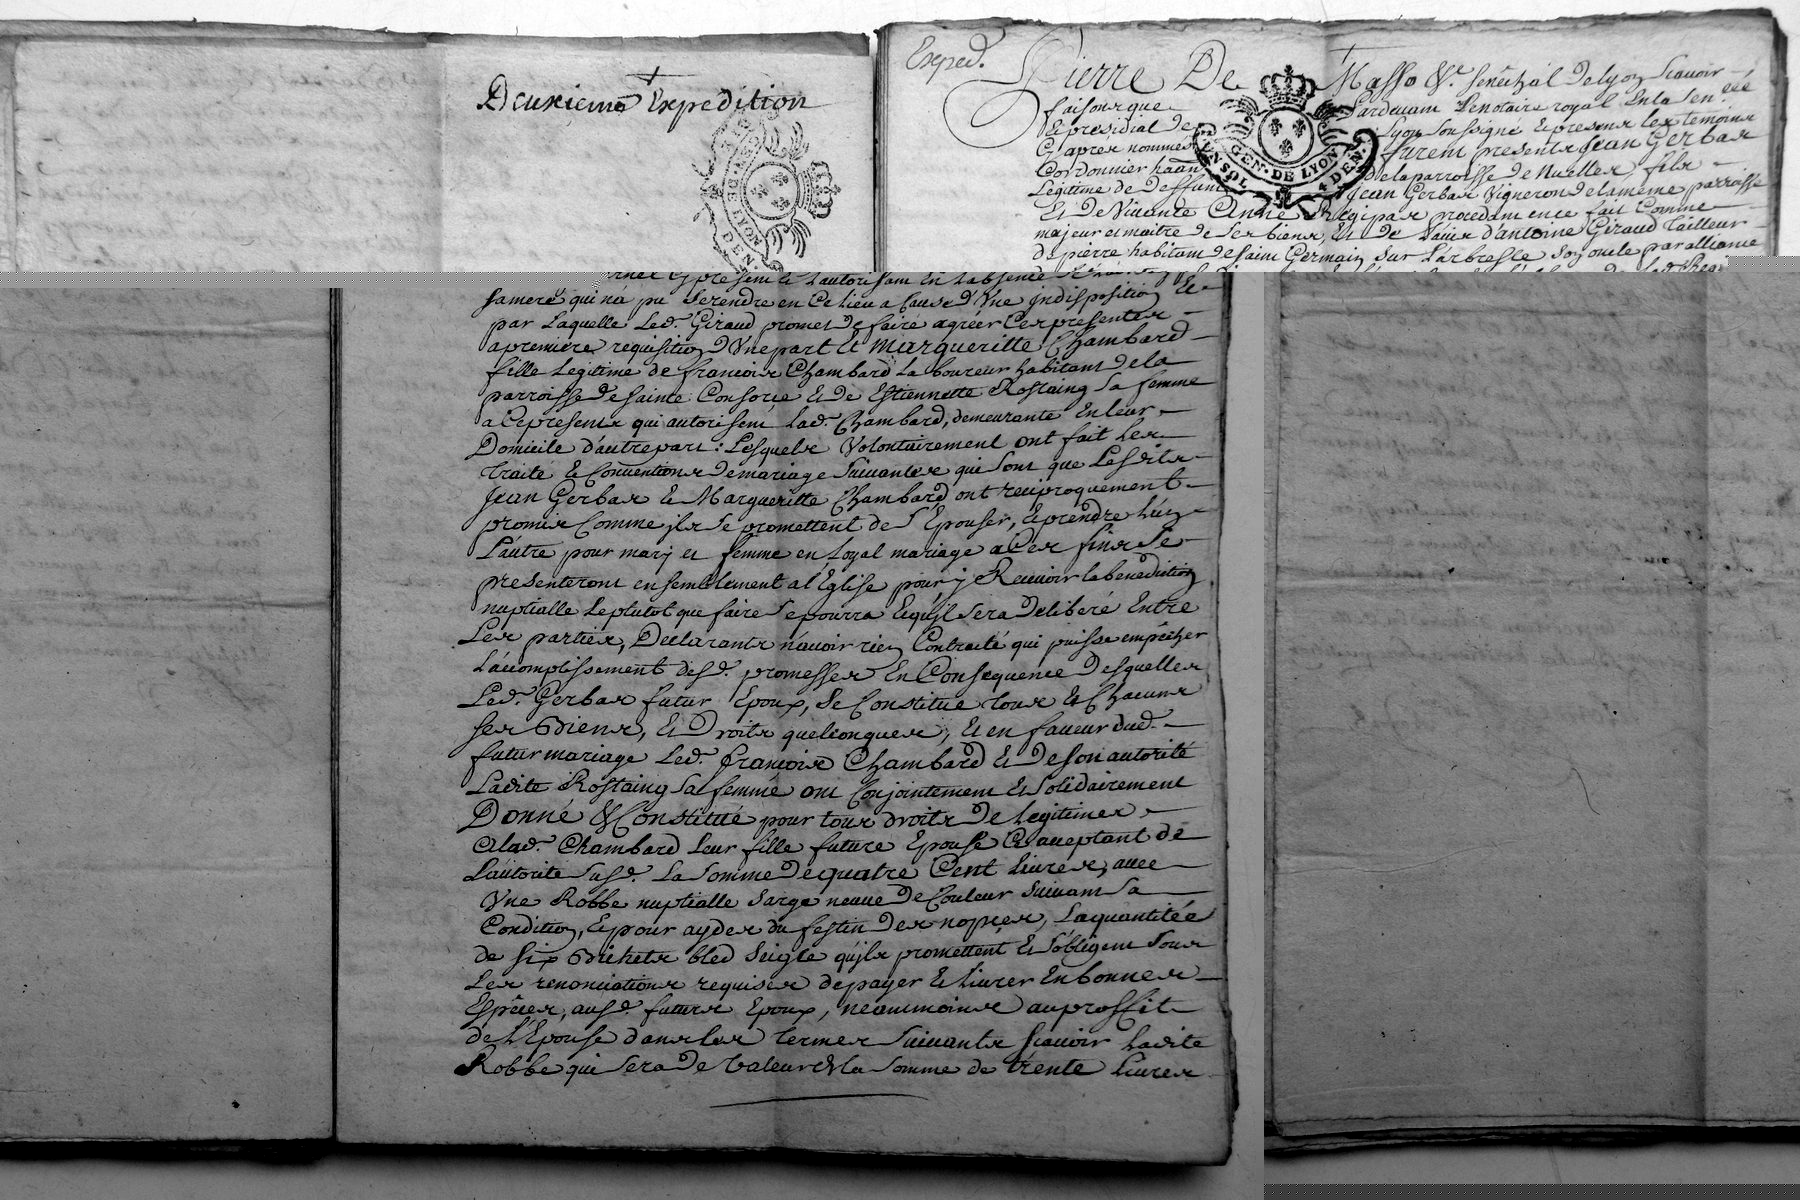 Deuxieme Expedition
Exped.
Pierre De Masso &c. senêchal de lyon scavoir
faisons que Pardevant le notaire royal en la sen.cée
& presidial de Lyon soussigné & presens les temoins
Cy apres nommés furent presents Jean Gerbas
Cordonnier haãnt de la parroisse de Nuelles, fils
Legitime de deffunt Jean Gerbas vigneron de la meme parroisse
Et de Vivante Anne procedant en ce fait Comme
majeur et maitre de ses biens, Et de l'avis d'antoine Giraud tailleur
de pierre habitant de saint Germain sur l'arbresle son oncle par alliance
GEN. DE LYON
EN SOL 4 DEN.
cy present & l'autorisant en l'absence
sa mere qui n'a pu se rendre en ce lieu a cause d'Vne jndisposition &
par laquelle led. Giraud promet de faire agréer Ces presentes
a premiere requisition d'Vne part Et Margueritte Chambard
fille Legitime de francois Chambard Laboureur habitant de la
parroisse de sainte Consorce & de Estiennette Rostaing sa femme
a Ce presents qui autorisent lad. Chambard, demeurante En leur
Domicile d'autre part : Lesquels Volontairement ont fait les
traité & Conventions de mariage suivantes qui sont que Lesdits
Jean Gerbas & Margueritte Chambard ont reciproquement
promis Comme jls se promettent de s'Epouser, & prendre l'un
L'autre pour mary et femme en loyal mariage a Ces fins se
presenteront ensemblement a l'Eglise pour y Recevoir la benediction
nuptialle le plutot que faire se pourra & qu'jl sera deliberé Entre
Les parties, Declarants n'avoir rien Contracté qui puisse empêcher
L'accomplissement desd. promesses En Consequence desquelles
Led. Gerbas futur Epoux, se Constitue tous & Chacuns
ses Biens, & Droits quelconques, Et en faveur dud.
futur mariage Led. francois Chambard & de son autorité
Ladite Rostaing sa femme ont Conjointement & solidairement
Donné & Constitué pour tous droits de legitimes
a lad. Chambard leur fille future Epouse Ce acceptant de
L'autorité susd. La somme de quatre Cent livres, avec
Vne Robbe nuptialle sarge neuve de Couleur suivant sa
Condition, & pour ayder du festin des nopces, La quantitée
de six Bichets bled seigle qu'jls promettent & s'obligent sous
Les renonciations requises de payer & livrer En bonnes
Espêces, ausd. futurs Epoux, neantmoins au proffit
de l'Epouse dans les termes suivants scavoir ladite
Robbe qui sera de valeur de la somme de trente livres